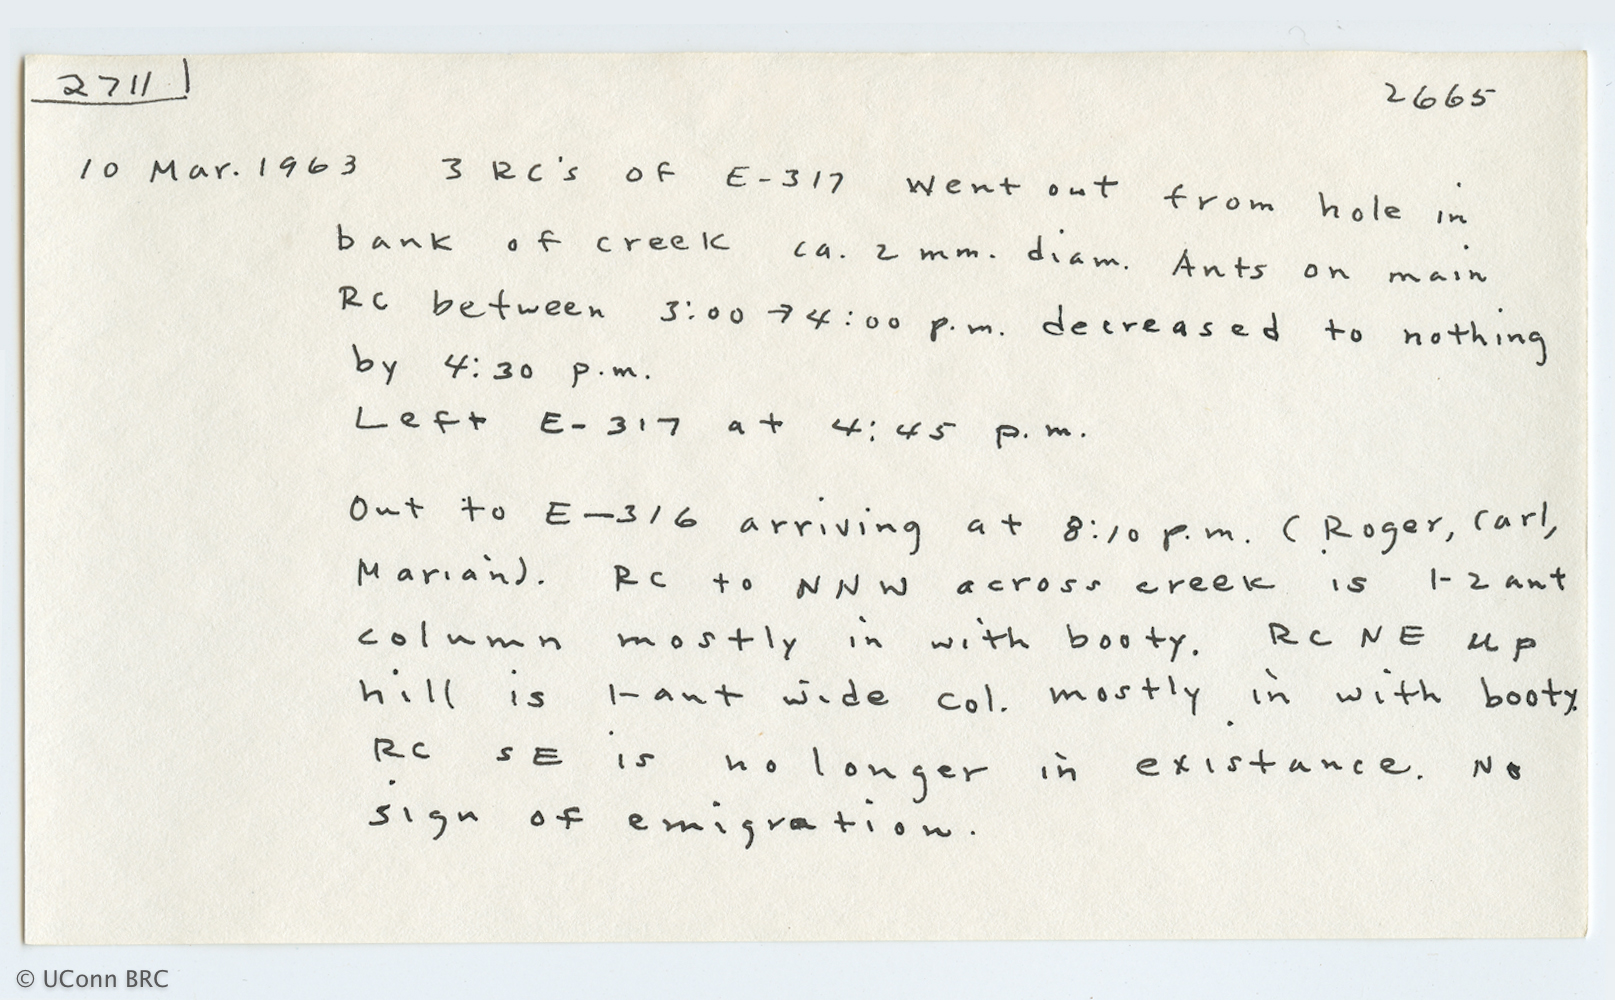 2711
2665
10 Mar. 1963 3 RC's of E-317 went out from hole in
bank of creek ca. 2 mm. diam. Ants on main
RC between 3:00 → 4:00 p.m. decreased to nothing
by 4:30 p.m.
Left E-317 at 4:45 p.m.
Out to E-316 arriving at 8:10 p.m. (Roger, Carl,
Marian). RC to NNW across creek is 1-2 ant
column mostly in with booty. RC NE up
hill is 1-ant wide col. mostly in with booty.
RC SE is no longer in existance. No
sign of emigration.
© UConn BRC